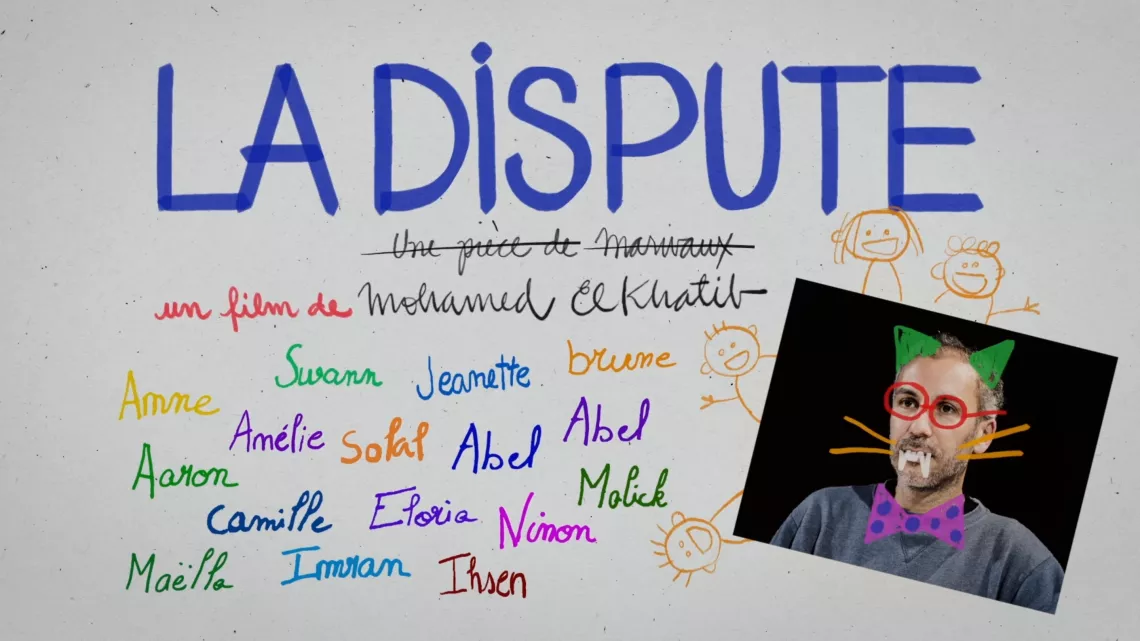 LA DISPUTE
une pièce de marivaux
un film de Mohamed El Khatib
Swann Jeanette brune
Anne Amélie Solal Abel Abel
Aaron Malick
Camille Eloria Ninon
Maëlla Imran Ihsen